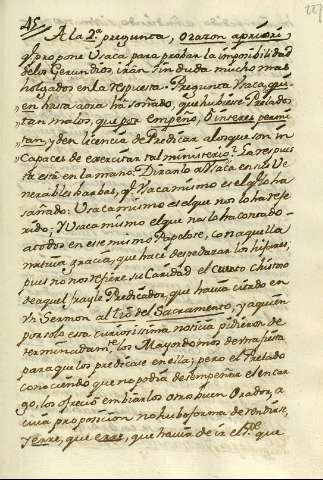 45
227
A la 2ª pregunta, o razon apriori
q͂ propone Usaca para probar la imposibilidad
de los Gerundios, irán sin duda mucho mas
holgados en la respuesta. Pregunta Usaca, qui-
en hasta aora ha soñado, que hubiese Prelados
tan malos, que por empeño, ò interes permi-
tan, y den licencia de Predicar alos que son in
capaces de exercitar tal ministerio? La respues
ta está en la mano. Diranlo a Usaca en sus Ve
nerables barbas, q͂ Usaca mismo es el q͂ lo ha
soñado: Usaca mismo es el que nos lo ha refe-
rido; y Usaca mismo el que nos lo ha contado
a todos en ese mismo Papelote, con aquella
nativa gracia, que hace despedazar los hijares;
pues no nos refiere su Caridad el cuento chistoso
de aquel frayle Predicador, que havia citado en
un Sermon al tio del Sacramento, y a quien
por sola esta curiosissima noticia pidieron de-
terminadamᵗᵉ los Mayordomos de otra fiesta
para que les predicase en ella; pero el Prelado
conociendo que no podia desempeñar el encar
go, les ofreció embiarles otro buen Orador, a
cuia proposicion no hubo forma de rendirse,
y erre, que erre, que havia de ir el Pᵉ que